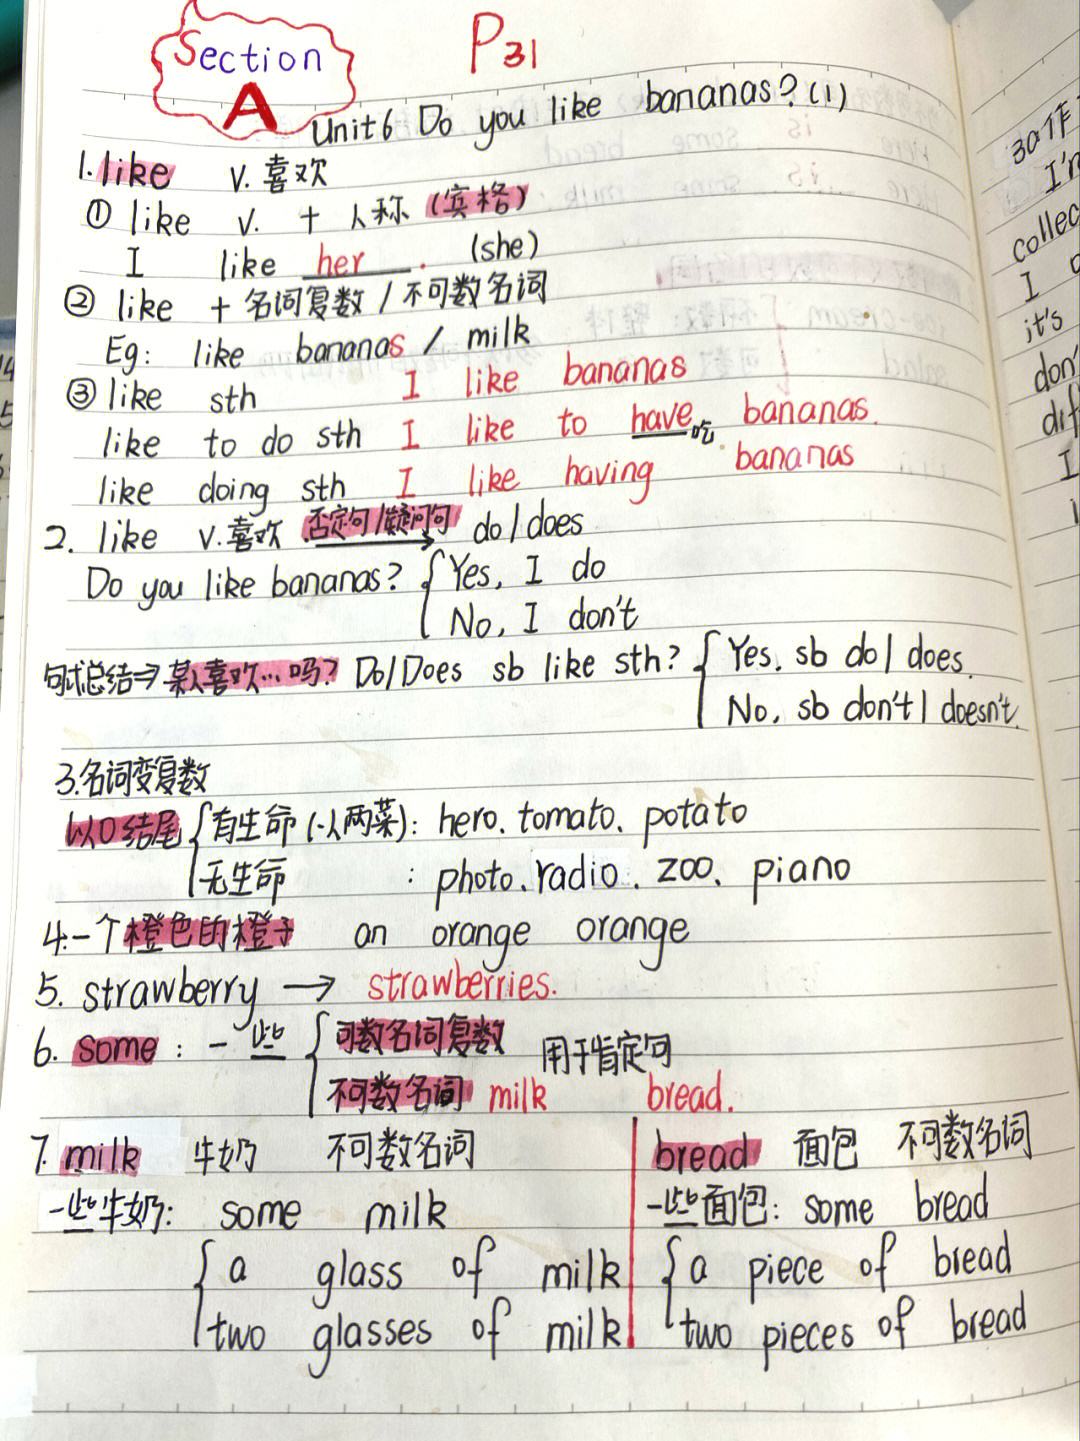 Section
A
P31
Unit 6 Do you like bananas? (1)
1. like v. 喜欢
① like v. + 人称 (宾格)
I like her. (she)
② like + 名词复数 / 不可数名词
Eg: like bananas / milk
③ like sth I like bananas
like to do sth I like to have 吃 bananas.
like doing sth I like having bananas
2. like v. 喜欢 否定句/疑问句 → do / does
Do you like bananas? { Yes, I do
No, I don't
句式总结⇒某人喜欢…吗? Do/Does sb like sth? { Yes, sb do / does.
No, sb don't / doesn't.
3. 名词变复数
以O结尾 { 有生命 (一人两菜): hero、tomato、potato
无生命 : photo、radio、zoo、piano
4. 一个橙色的橙子 an orange orange
5. strawberry → strawberries.
6. some : 一些 { 可数名词复数 用于肯定句
不可数名词 milk bread.
7. milk 牛奶 不可数名词
一些牛奶: some milk
{ a glass of milk
two glasses of milk
bread 面包 不可数名词
一些面包: some bread
{ a piece of bread
two pieces of bread
30 作
I'm
I
it's
don'
I